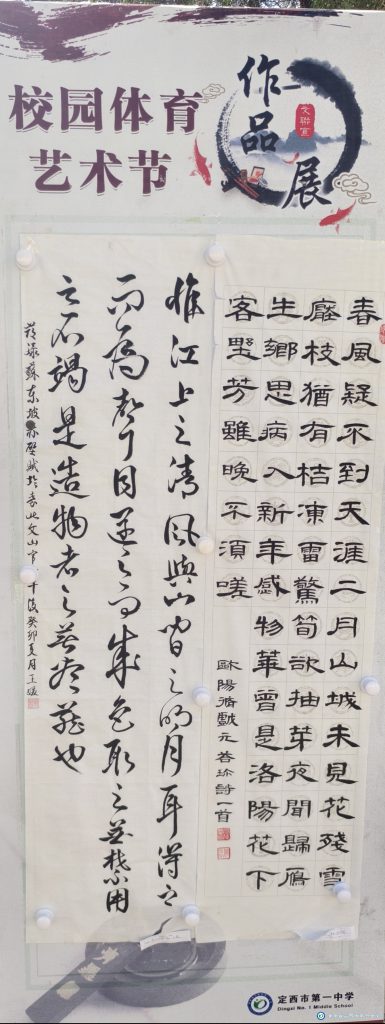 校园体育
艺术节
作品展
文聯宣
春風疑不到天涯二月山城未見花殘雪
壓枝猶有桔凍雷驚筍欲抽芽夜聞歸鴈
生鄉思病入新年感物華曾是洛陽花下
客野芳雖晚不須嗟
歐陽脩戲元答珍詩一首
惟江上之清風與山間之明月耳得之
而為聲目遇之而成色取之無禁用
之不竭是造物者之無盡藏也
蘇東坡赤壁賦於 癸卯夏月王媛
定西市第一中学
Dingxi No. 1 Middle School